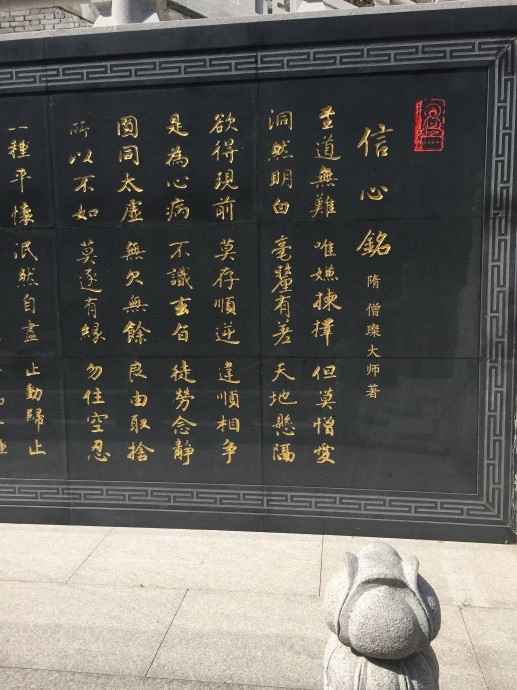 信心銘 隋 僧璨大师著
至道無難 唯嫌揀擇 但莫憎愛
洞然明白 毫釐有差 天地懸隔
欲得現前 莫存順逆 違順相争
是為心病 不識玄旨 徒勞念静
圓同太虚 無欠無餘 良由取捨
所以不如 莫逐有緣 勿住空忍
一種平懷 泯然自盡 止動歸止